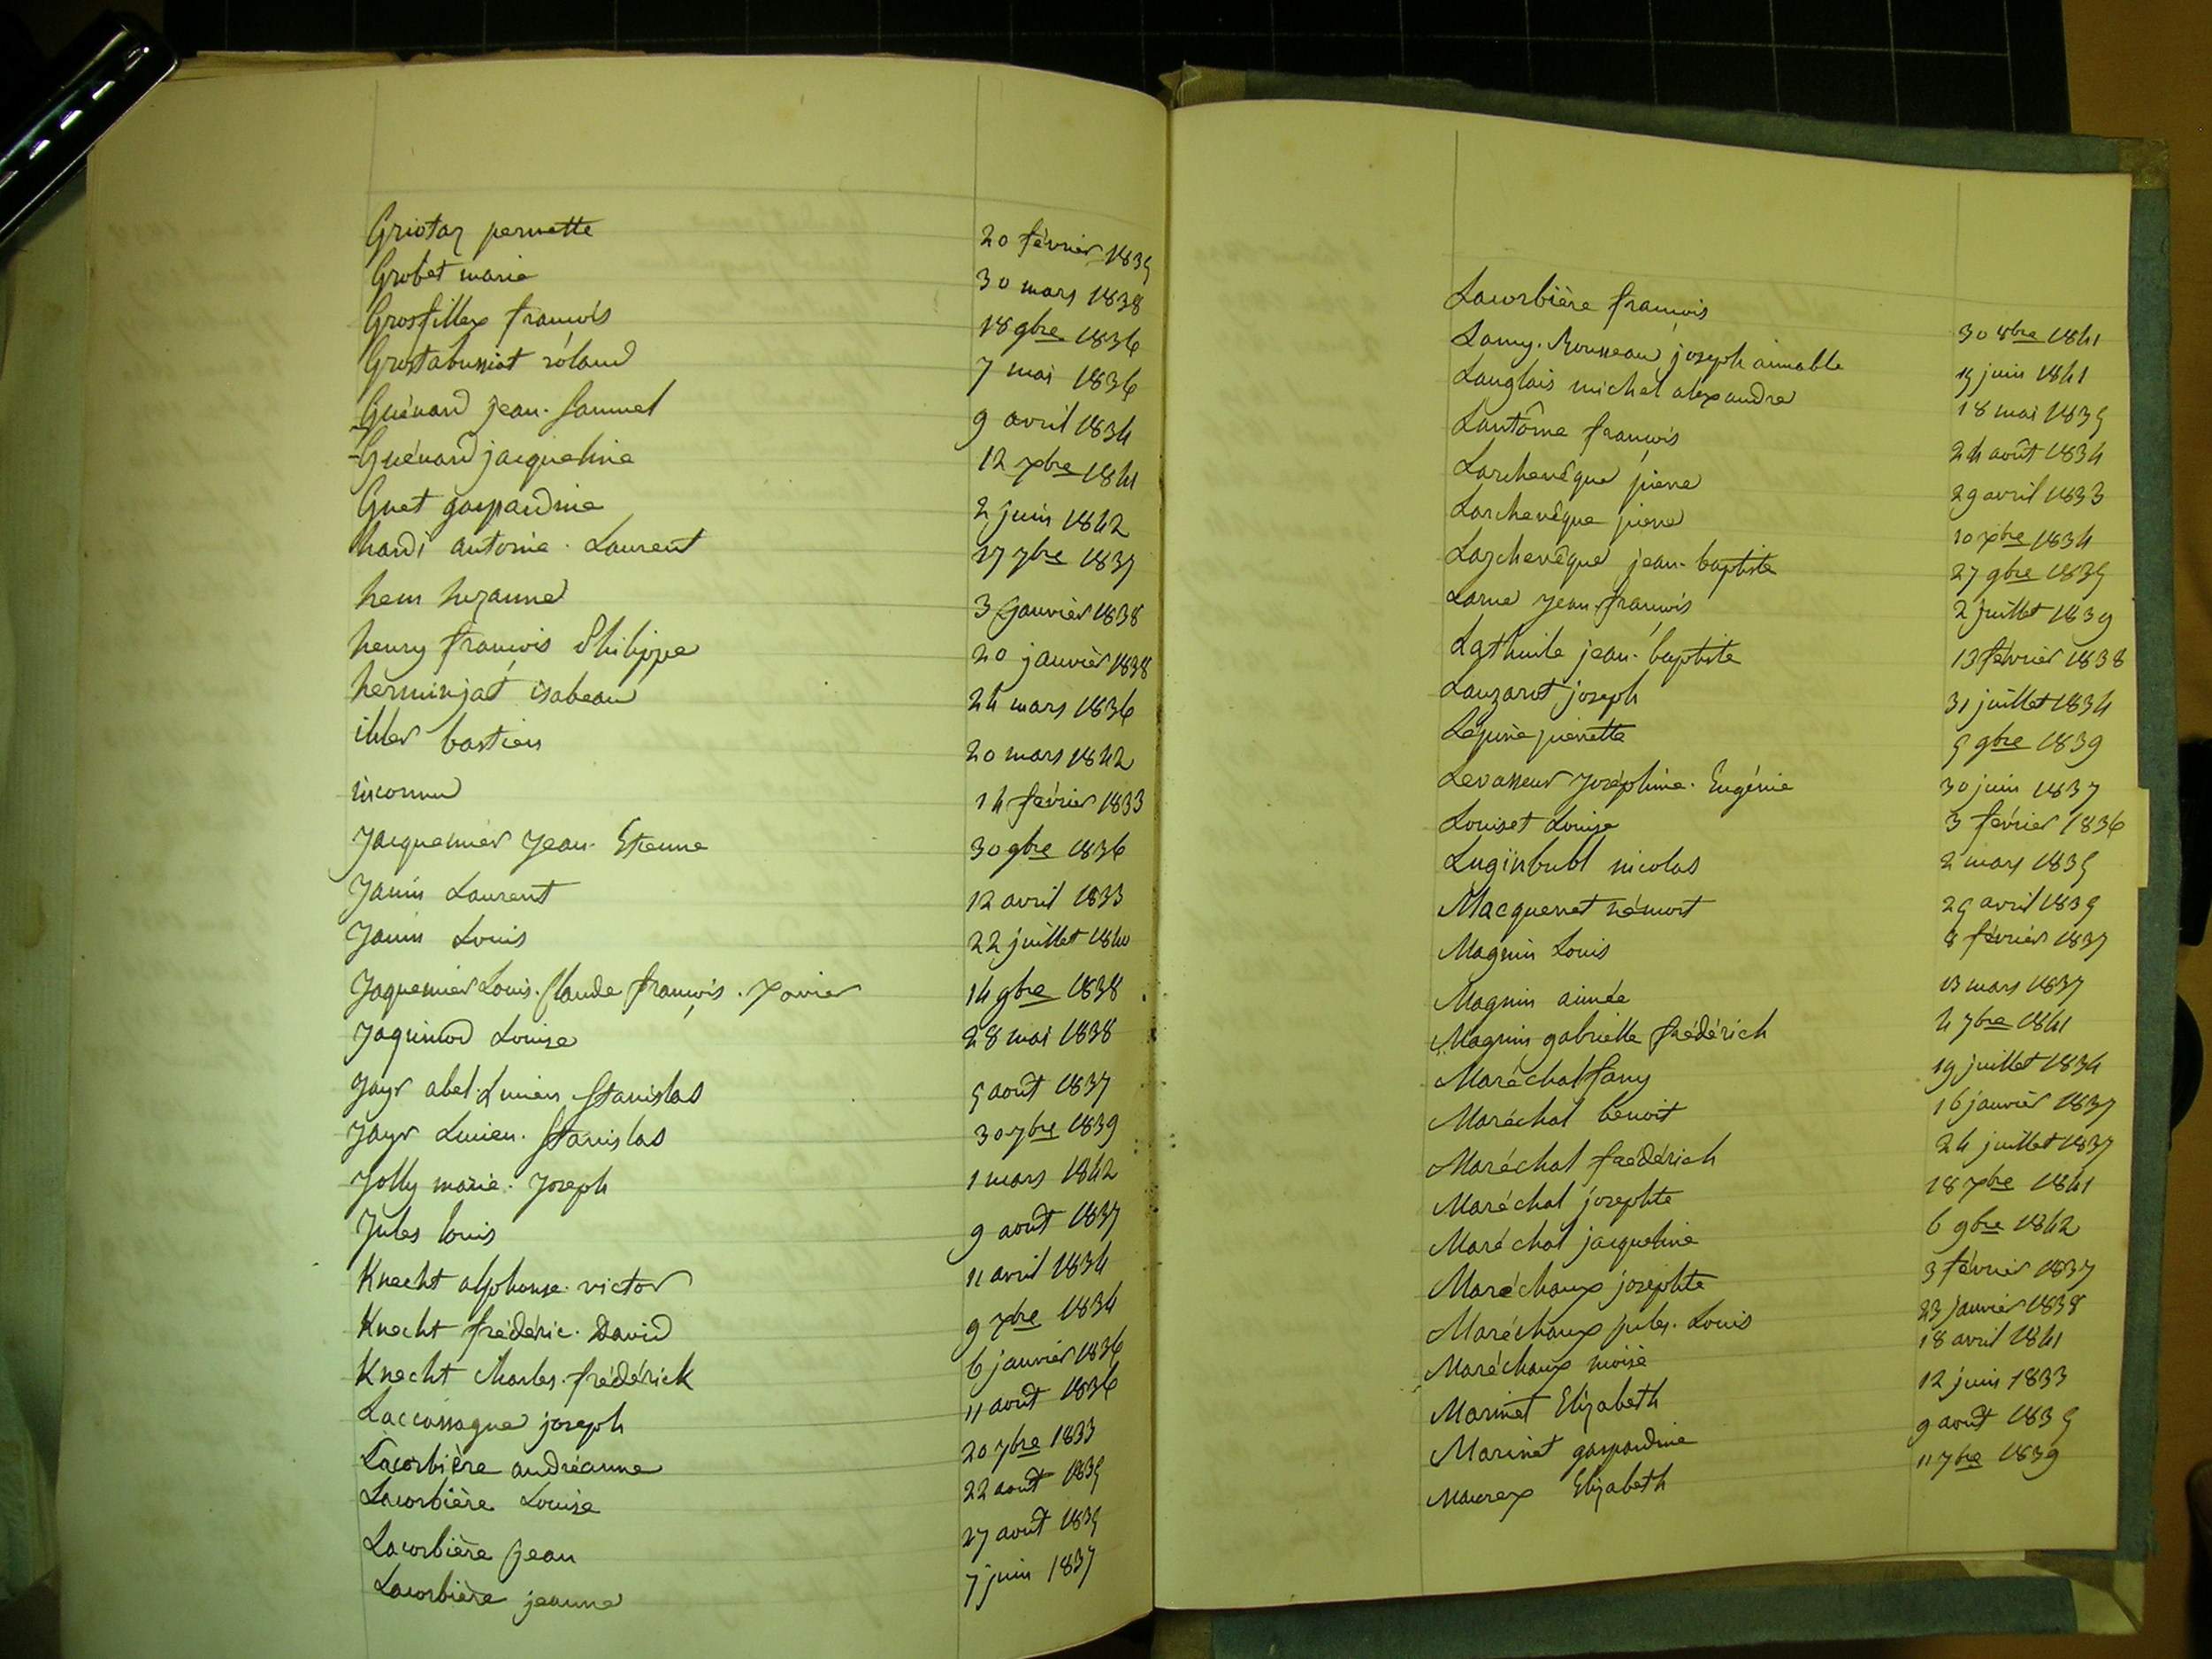 Griotaz pernette 20 février 1835
Grobet marie 30 mars 1838
Grosfillex françois 18 9bre 1836
Grostabussiat roland 7 mai 1836
Guénard Jean. Samuel 9 avril 1834
Guénard jacqueline 12 xbre 1841
Guet gaspardine 2 juin 1842
hardi antoine. Laurent 17 7bre 1837
hem suzanne 3 Janvier 1838
henry françois Philippe 20 janvier 1838
herminjat isabeau 24 mars 1836
ihler bastien 20 mars 1842
inconnu 14 février 1833
Jacquemier Jean. Etienne 30 9bre 1836
Janin Laurent 12 avril 1833
Janin Louis 22 juillet 1840
Jaquemier Louis. Claude françois. Xavier 14 9bre 1838
Jaquinod Louise 28 mai 1838
Jayr abel Lucien Stanislas 5 août 1837
Jayr Lucien. Stanislas 30 7bre 1839
Jolly marie. Joseph 1 mars 1842
Jules louis 9 août 1837
Knecht alphonse. victor 11 avril 1834
Knecht frédéric. David 9 xbre 1834
Knecht charles. frédérick 6 janvier 1836
Laccassagne joseph 11 août 1836
Lacorbière andréanne 20 7bre 1833
Lacorbière Louise 22 août 1835
Lacorbière Jean 27 août 1835
Lacorbière jeanne 7 juin 1837
Lacorbière françois 30 8bre 1841
Lamy. Rousseau joseph aimable 15 juin 1841
Langlais michel alexandre 18 mai 1835
Lantôme françois 24 août 1834
Larchevêque pierre 29 avril 1833
Larchevêque pierre 10 xbre 1834
Larchevêque jean. baptiste 27 9bre 1835
Larue Jean. françois 2 juillet 1839
Lathuile jean. baptiste 13 février 1838
Lauzarot joseph 31 juillet 1834
Lépine pierrette 5 9bre 1839
Levasseur Joséphine. Eugénie 30 juin 1837
Louiset Louise 3 février 1836
Luginbuhl nicolas 2 mars 1835
Macquenet némort 25 avril 1835
Magnin Louis 8 février 1837
Magnin aimée 13 mars 1837
Magnin gabrielle frédérich 4 7bre 1841
Maréchal fany 19 juillet 1834
Maréchal benoit 16 janvier 1837
Maréchal frédérich 24 juillet 1837
Maréchal josephte 18 xbre 1841
Maréchal jacqueline 6 9bre 1842
Maréchaux josephte 3 février 1837
Maréchaux jules. Louis 23 janvier 1838
Maréchaux moïse 18 avril 1841
Marinet Elizabeth 12 juin 1833
Marinet gaspardine 9 août 1835
Maurex Elizabeth 11 7bre 1839